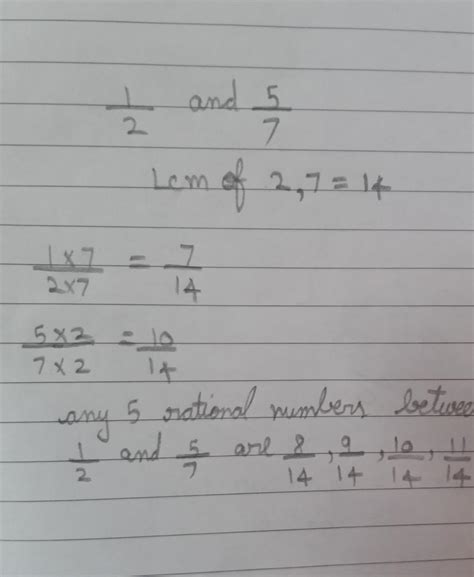 1/2 and 5/7
Lcm of 2,7 = 14
1×7/2×7 = 7/14
5×2/7×2 = 10/14
any 5 rational numbers betwee
1/2 and 5/7 are 8/14, 9/14, 10/14, 11/14